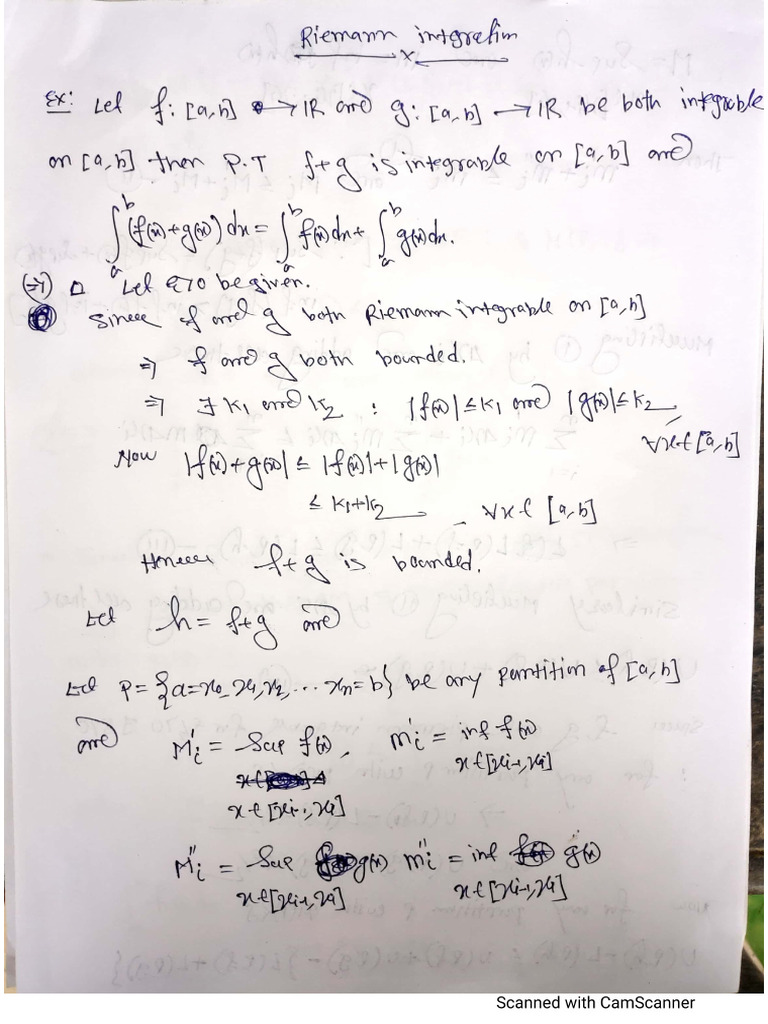 Riemann integration
Ex: Let f: [a,b] → IR and g: [a,b] → IR be both integrable
on [a,b] then P.T f+g is integrable on [a,b] and
∫_a^b (f(x)+g(x)) dx = ∫_a^b f(x)dx + ∫_a^b g(x)dx.
(⇒) Let ε>0 be given.
Since f and g both Riemann integrable on [a,b]
⇒ f and g both bounded.
⇒ ∃ K1 and K2 : |f(x)| ≤ K1 and |g(x)| ≤ K2
∀x∈[a,b]
Now |f(x)+g(x)| ≤ |f(x)|+|g(x)|
≤ K1+K2 ∀x∈ [a,b]
Hence f+g is bounded.
Let h = f+g and
Let P = {a=x0, x1, x2, ... xn=b} be any partition of [a,b]
and M'i = Sup f(x), m'i = inf f(x)
x∈[xi-1, xi] x∈[xi-1, xi]
M''i = Sup g(x) m''i = inf g(x)
x∈[xi-1, xi] x∈[xi-1, xi]
Scanned with CamScanner